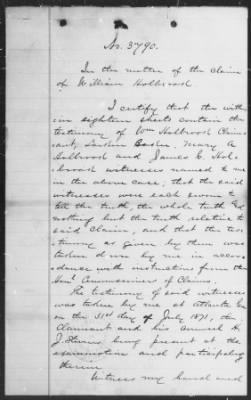 No. 3790.
In the matter of the claim
of William Holbrook
I certify that the with
in eighteen sheets contain the
testimony of Wm Holbrook Claim
ant, Mary A
Holbrook and James C. Hol-
brook witnesses named to me
in the above case, that the said
witnesses were each sworn to
tell the truth, the whole truth and
nothing but the truth relative to
said claim, and that the tes-
timony as given by them was
taken down by me in accor-
dance with instructions from the
Honl Commissioners of Claims.
The testimony of said witnesses
was taken by me at Atlanta Ga
on the 31st day of July 1871, the
Claimant and his counsel
J. being present at the
examination and participating
therein
Witness my hand and